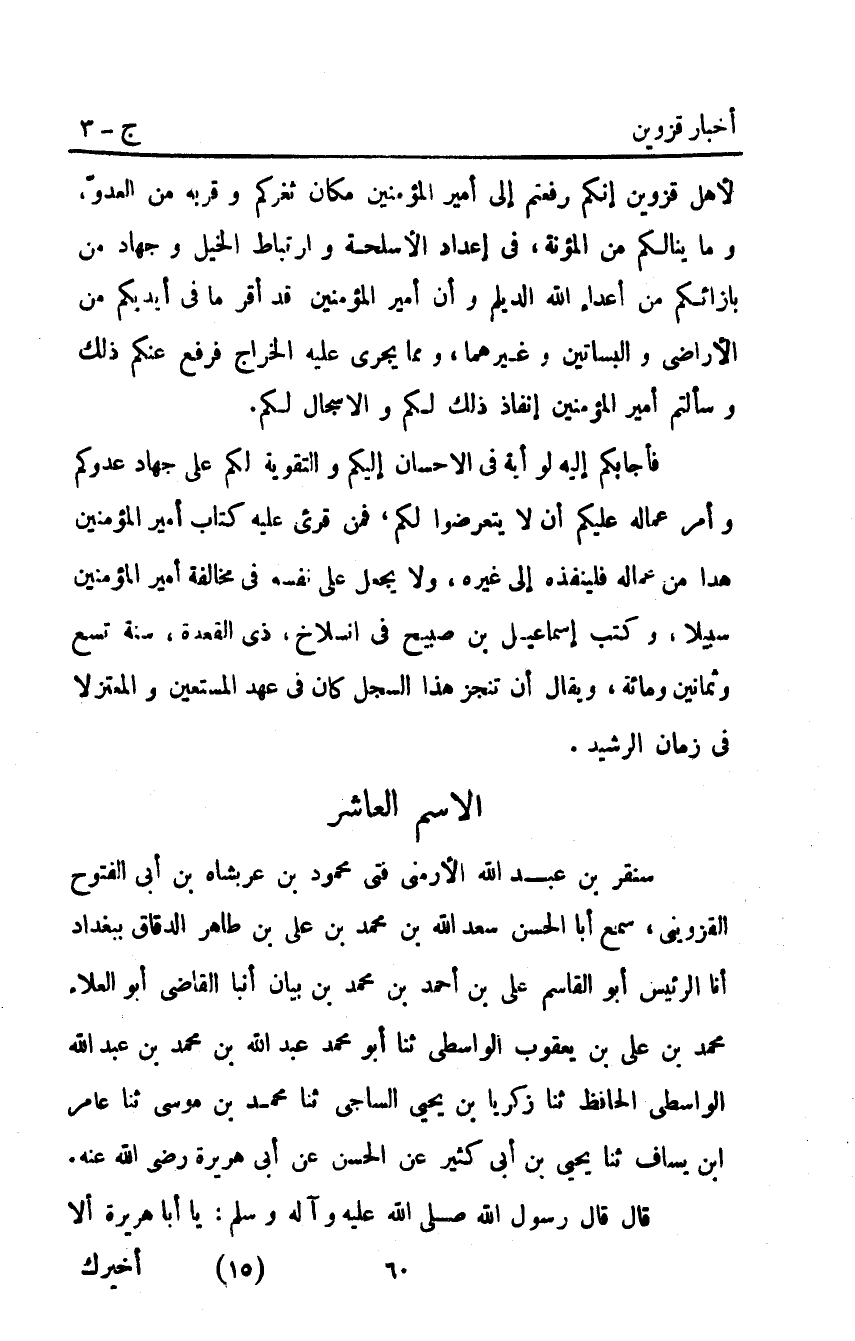 أخبار قزوين ج - ٣
لأهل قزوين إنكم رفعتم إلى أمير المؤمنين مكان ثغركم و قربه من العدوّ،
و ما ينالكم من المؤنة، فى إعداد الأسلحة و ارتباط الخيل و جهاد من
بازائكم من أعداء الله الديلم و أن أمير المؤمنين قد أقر ما فى أيديكم من
الأراضى و البساتين و غيرهما، و مما يجرى عليه الخراج فرفع عنكم ذلك
و سألتم أمير المؤمنين إنفاذ ذلك لكم و الاسجال لكم.
فأجابكم إليه لو أبة فى الاحسان إليكم و التقوية لكم على جهاد عدوكم
و أمر عماله عليكم أن لا يتعرضوا لكم، فمن قرئ عليه كتاب أمير المؤمنين
هدا من عماله فلينفذه إلى غيره، ولا يجعل على نفسه فى مخالفة أمير المؤمنين
سبيلا، و كتب إسماعيل بن صبيح فى انسلاخ، ذى القعدة، سنة تسع
وثمانين ومائة، ويقال أن تنجز هذا السجل كان فى عهد المستعين و المعتز لا
فى زمان الرشيد .
الاسم العاشر
سنقر بن عبد الله الأرمنى فتى محمود بن عربشاه بن أبى الفتوح
القزوينى، سمع أبا الحسن سعد الله بن محمد بن على بن طاهر الدقاق ببغداد
أنا الرئيس أبو القاسم على بن أحمد بن محمد بن بيان أنبا القاضى أبو العلاء
محمد بن على بن يعقوب الواسطى ثنا أبو محمد عبد الله بن محمد بن عبد الله
الواسطى الحافظ ثنا زكريا بن يحيى الساجى ثنا محمد بن موسى ثنا عامر
ابن يساف ثنا يحيى بن أبى كثير عن الحسن عن أبى هريرة رضى الله عنه.
قال قال رسول الله صلى الله عليه و آله و سلم : يا أبا هريرة ألا
٦٠ (١٥) أخبرك